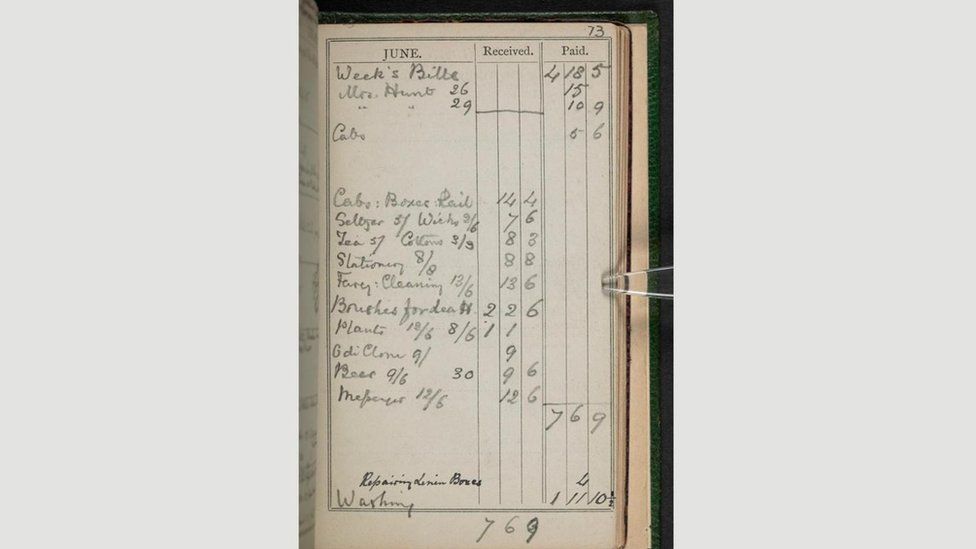 73
JUNE. Received. Paid.
Week's Bills 4 18 5
Mrs. Hunt 26 15
" " 29 10 9
Cabs 5 6
Cabs: Boxes: Rail 14 4
Seltzer 5/ Wicks 2/6 7 6
Tea 5/ Cottons 3/3 8 3
Stationery 8/8 8 8
Cleaning 13/6 13 6
Brushes for 2 2 6
Plants 12/6 8/6 1 1
9/ 9
Beer 9/6 30 9 6
Messenger 12/6 12 6
7 6 9
Repairing Linen Boxes 4
Washing 1 11 10½
7 6 9